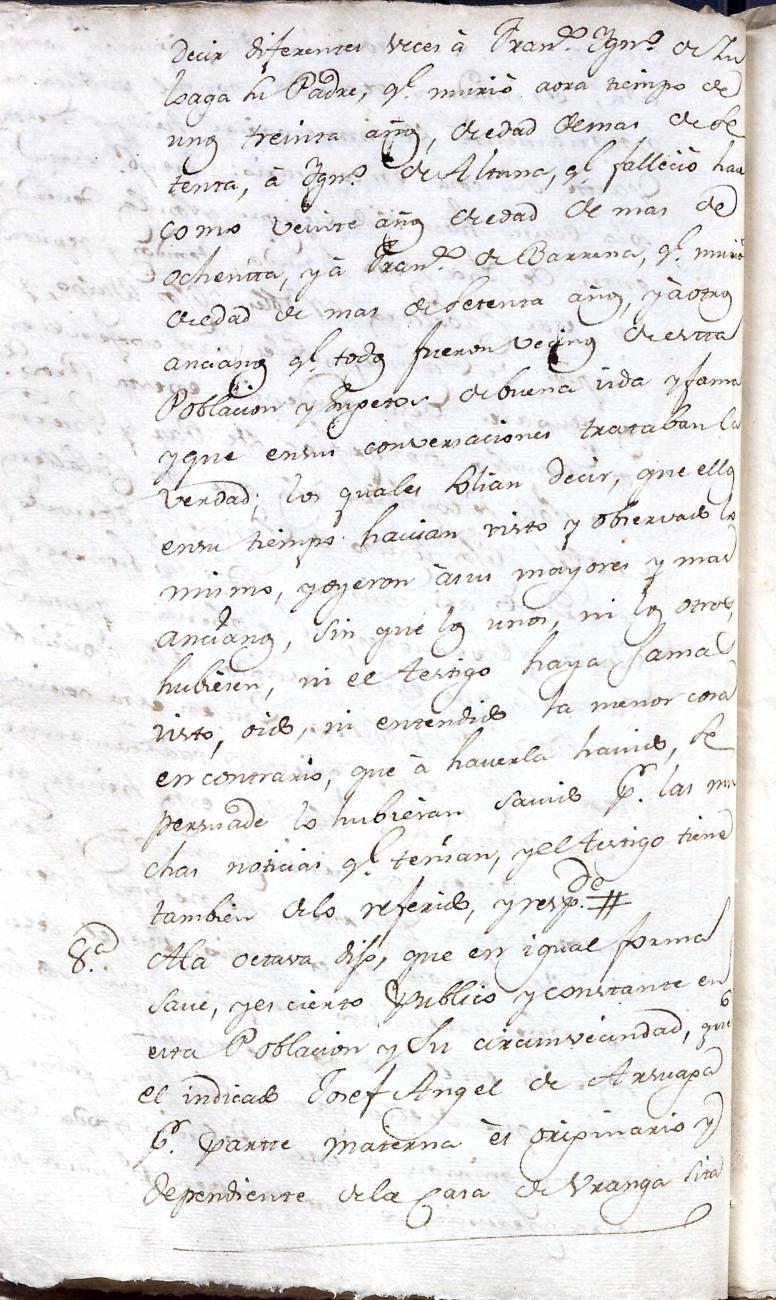 Decir diferentes veces à Fran.co Ygn.o de Zu
loaga su Padre, q.e muriò aora tiempo de
unos treinta años, de edad de mas de se
tenta, à Ygn.o de Altuna, q.e falleciò hace
como veinte años de edad de mas de
ochentta, y à Fran.co de Barrena, q.e murió
de edad de mas de setenta años, y à otros
ancianos q.e todos fueron vecinos de estta
Poblacion y sugetos de buena vida y fama
y que en sus conversaciones trataban la
verdad; los quales solian decir, que ellos
en su tiempo havian visto y observado lo
mismo, y oyeron à sus mayores y mas
ancianos, sin que los unos, ni los otros,
hubiesen, ni el testigo haya jamas
visto, oido, ni entendido la menor cosa
en contrario, que à haverla havido, se
persuade lo hubieran savido p.r las mu
chas noticias q.e tenian, y el testigo tiene
tambien de lo referido, y resp.de #
8.a A la octava dijo, que en igual forma
save, y es cierto publico y constante en
esta Poblacion y su circunvecindad, que
el indicado Josef Angel de Aranapa
p.r partte materna es originario y
dependiente de la Casa de Vranga sita